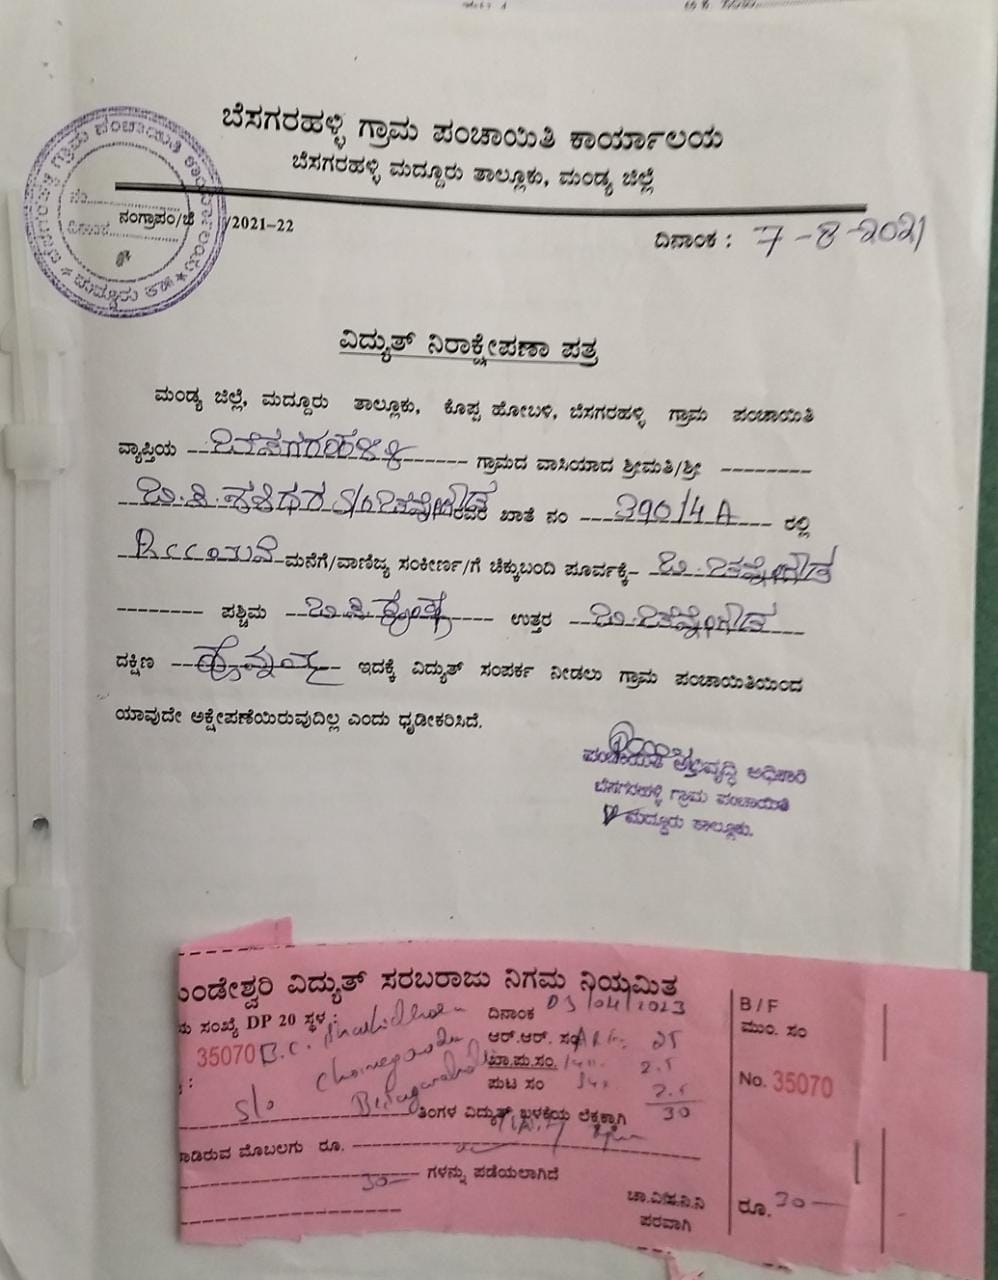 ಬೆಸಗರಹಳ್ಳಿ ಗ್ರಾಮ ಪಂಚಾಯಿತಿ ಕಾರ್ಯಾಲಯ
ಬೆಸಗರಹಳ್ಳಿ ಮದ್ದೂರು ತಾಲ್ಲೂಕು, ಮಂಡ್ಯ ಜಿಲ್ಲೆ
ನಂಗ್ರಾಪಂ/ಬೆ /2021-22
ದಿನಾಂಕ : 7-8-2021
ವಿದ್ಯುತ್ ನಿರಾಕ್ಷೇಪಣಾ ಪತ್ರ
ಮಂಡ್ಯ ಜಿಲ್ಲೆ, ಮದ್ದೂರು ತಾಲ್ಲೂಕು, ಕೊಪ್ಪ ಹೋಬಳಿ, ಬೆಸಗರಹಳ್ಳಿ ಗ್ರಾಮ ಪಂಚಾಯಿತಿ
ವ್ಯಾಪ್ತಿಯ ಬೆಸಗರಹಳ್ಳಿ ಗ್ರಾಮದ ವಾಸಿಯಾದ ಶ್ರೀಮತಿ/ಶ್ರೀ
ಬಿ.ಸಿ.ಶಶಿಧರ S/o ರವರ ಖಾತೆ ನಂ 390/4A ರಲ್ಲಿ
ಮನೆಗೆ/ವಾಣಿಜ್ಯ ಸಂಕೀರ್ಣ/ಗೆ ಚೆಕ್ಕುಬಂದಿ ಪೂರ್ವಕ್ಕೆ-
ಪಶ್ಚಿಮ ಬಿ.ಸಿ. ಉತ್ತರ
ದಕ್ಷಿಣ ಇದಕ್ಕೆ ವಿದ್ಯುತ್ ಸಂಪರ್ಕ ನೀಡಲು ಗ್ರಾಮ ಪಂಚಾಯಿತಿಯಿಂದ
ಯಾವುದೇ ಅಕ್ಷೇಪಣೆಯಿರುವುದಿಲ್ಲ ಎಂದು ಧೃಡೀಕರಿಸಿದೆ.
ಪಂಚಾಯಿತಿ ಅಭಿವೃದ್ಧಿ ಅಧಿಕಾರಿ
ಬೆಸಗರಹಳ್ಳಿ ಗ್ರಾಮ ಪಂಚಾಯಿತಿ
ಮದ್ದೂರು ತಾಲ್ಲೂಕು.
ುಂಡೇಶ್ವರಿ ವಿದ್ಯುತ್ ಸರಬರಾಜು ನಿಗಮ ನಿಯಮಿತ
ಸಂಖ್ಯೆ DP 20 ಸ್ಥಳ :
ದಿನಾಂಕ 03/04/2023
35070 B.C. Shashidhara
ಆರ್.ಆರ್. ಸಂ 25
S/o Channegowda
ಖಾ.ಪು.ಸಂ. 2.5
Besagarahalli
ಪುಟ ಸಂ 2.5
30
ತಿಂಗಳ ವಿದ್ಯುತ್ ಬಳಕೆಯ ಲೆಕ್ಕಕ್ಕಾಗಿ
ಮೊಬಲಗು ರೂ.
30 ಗಳನ್ನು ಪಡೆಯಲಾಗಿದೆ
ಚಾ.ವಿ.ಸ.ನಿ.ನಿ
ಪರವಾಗಿ
B/F
ಮುಂ. ಸಂ
No. 35070
ರೂ. 30